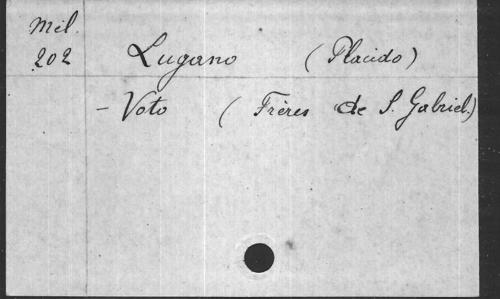 Mil.
202
Lugano (Placido)
- Voto (Frères de S. Gabriel.)